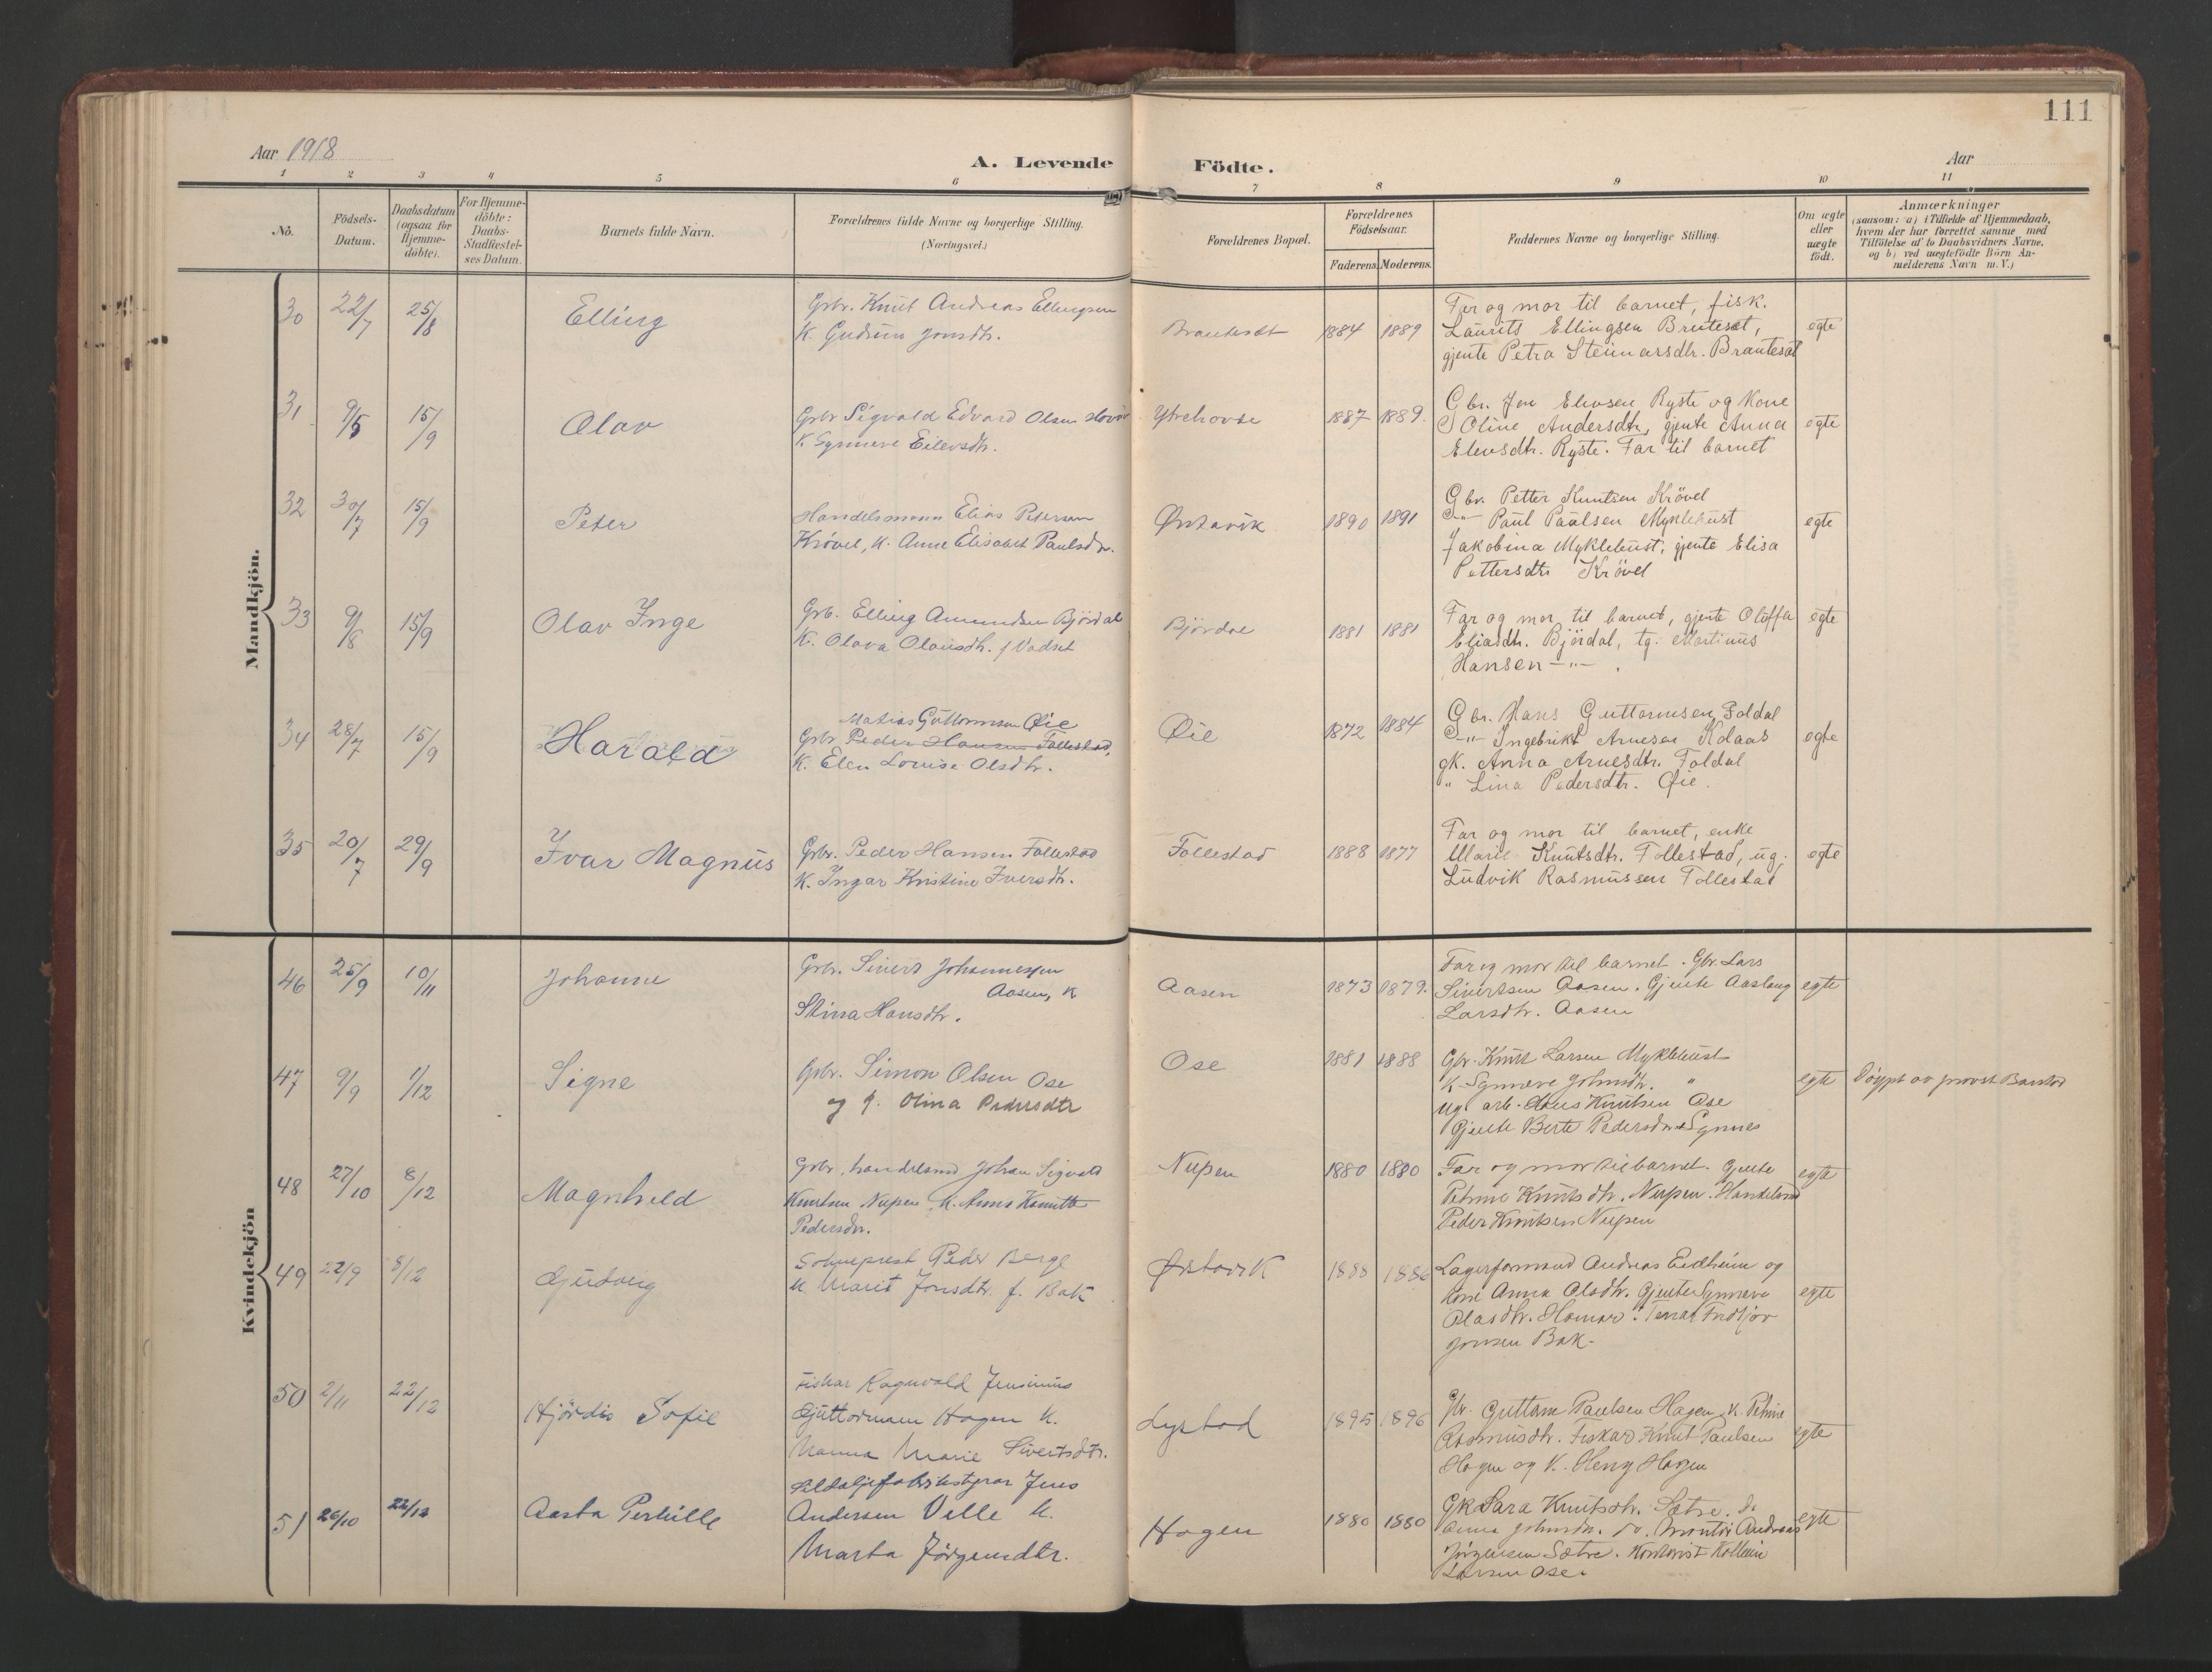 111
Aar 1918
A. Levende Födte.
Aar
1 2 3 4 5 6 7 8 9 10 11
No.
Födsels-Datum.
Daabsdatum (ogsaa for Hjemme-döbte).
For Hjemme-döbte: Daabs-Stadfæstel-ses Datum.
Barnets fulde Navn.
Forældrenes fulde Navne og borgerlige Stilling.
(Næringsvei.)
Forældrenes Bopæl.
Forældrenes Födselsaar.
Faderens. Moderens.
Faddernes Navne og borgerlige Stilling.
Om ægte eller uægte födt.
Anmærkninger
(saasom: a) i Tilfælde af Hjemmedaab, hvem der har forrettet samme med Tilföielse af to Daabsvidners Navne, og b) ved uægtefödte Börn An-melderens Navn m. V.)
Mandkjön.
30 22/7 25/8 Elling
Grbr. Knut Andreas Ellingsen
K. Gudrun Jonsdtr.
Brauteset 1884 1889
Far og mor til barnet, fisk.
Laurits Ellingsen Bruteset,
gjente Petra Steinarsdtr. Brauteset
egte
31 9/5 15/9 Olav
Grbr Sigvald Edvard Olsen Hovde
K. Synneve Eilevsdtr.
Ytrehovde 1887 1889.
Gbr. Jon Elevsen Ryste og Kone
Oline Andersdtr, gjente Anna
Elevsdtr. Ryste. Far til barnet
egte
32 30/7 15/9 Peter
Handelsmann Elias Petersen
Krøvel, K. Anne Elisabet Paulsdtr.
Ørstavik 1890 1891
Gbr. Petter Knutsen Krövel
-"- Paul Paulsen Myklebust
Jakobina Myklebust, gjente Elisa
Pettersdtr Krövel
egte
33 9/8 15/9 Olav Inge
Grb. Elling Amundsen Bjørdal
K. Olava Olausdtr. f Vadset
Bjørdal 1881 1881
Far og mor til barnet, gjente Oluffa
Eliasdtr. Björdal, tg. Martinus
Hansen -"- .
egte
34 28/7 15/9 Harald
Matias Guttormsen Øie
Grbr Peder Hansen Follestad,
K. Elen Louise Olsdtr.
Øie 1872 1884
Gbr. Hans Guttormsen Foldal
-"- Ingebrikt Arnesen Kolaas
gk. Anna Arnesdtr. Foldal
" Lina Pedersdtr. Øie.
egte
35 20/7 29/9 Ivar Magnus
Grbr. Peder Hansen Follestad
K. Ingar Kristine Iversdtr.
Follestad 1888 1877
Far og mor til barnet, enke
Marie Knutsdtr. Follestad, ug.
Ludvik Rasmussen Follestad
egte
Kvindekjön
46 25/9 10/11 Johanne
Grbr. Sivert Johannessen
Aasen, K
Stina Hansdtr.
Aasen 1873 1879.
Far og mor til barnet. Gbr. Lars
Sivertsen Aasen. Gjente Aaslaug
Larsdtr. Aasen
egte
47 9/9 1/12 Signe
Grbr. Simon Olsen Ose
og g. Olina Pedersdtr
Ose 1881 1888
Gbr. Knut Larsen Myklebust
K. Synneve Johnsdtr. "
Ug. arb. Hans Knutsen Ose
Gjente Berte Pedersdtr Synnes
egte
Døypt av provst Barstad
48 27/10 8/12 Magnhild
Grbr. handelsmd Johan Sigvald
Knutsen Nupen, K. Anna Knutta
Pedersdtr.
Nupen 1880 1880
Far og mor til barnet. Gjente
Petrine Knutsdtr. Nupen. Handelsmd
Peder Knutsen Nupen
egte
49 22/9 8/12 Gudveig
Sokneprest Peder Berge
K Marit Jonsdtr. f. Bak
Ørstavik 1888 1886
Lagerformand Andreas Eidheim og
kone Anna Olsdtr. Gjente Synneve
Olasdtr. Hamar. Fridtjov
Jonsen Bak.
egte
50 2/11 22/12 Hjördis Sofie
Fiskar Ragnvald Jensinius
Guttormsen Hagen K.
Nanna Marie Sivertsdtr.
Lystad 1895 1896
Gbr. Guttorm Paulsen Hagen, K. Petrine
Rasmusdtr. Fiskar Knut Paulsen
Hagen og K. Hagen
egte
51 26/10 22/12 Aasta Pernille
Sildoljefabrikstyrar Jens
Andersen Velle K.
Marta Jörgensdtr.
Hagen 1880 1880
Gk Sara Knutsdtr. Sætre. do
Anna Johnsdtr. do. Montör Andreas
Jörgensen Sætre. Kontorist
Larsen Ose.
egte